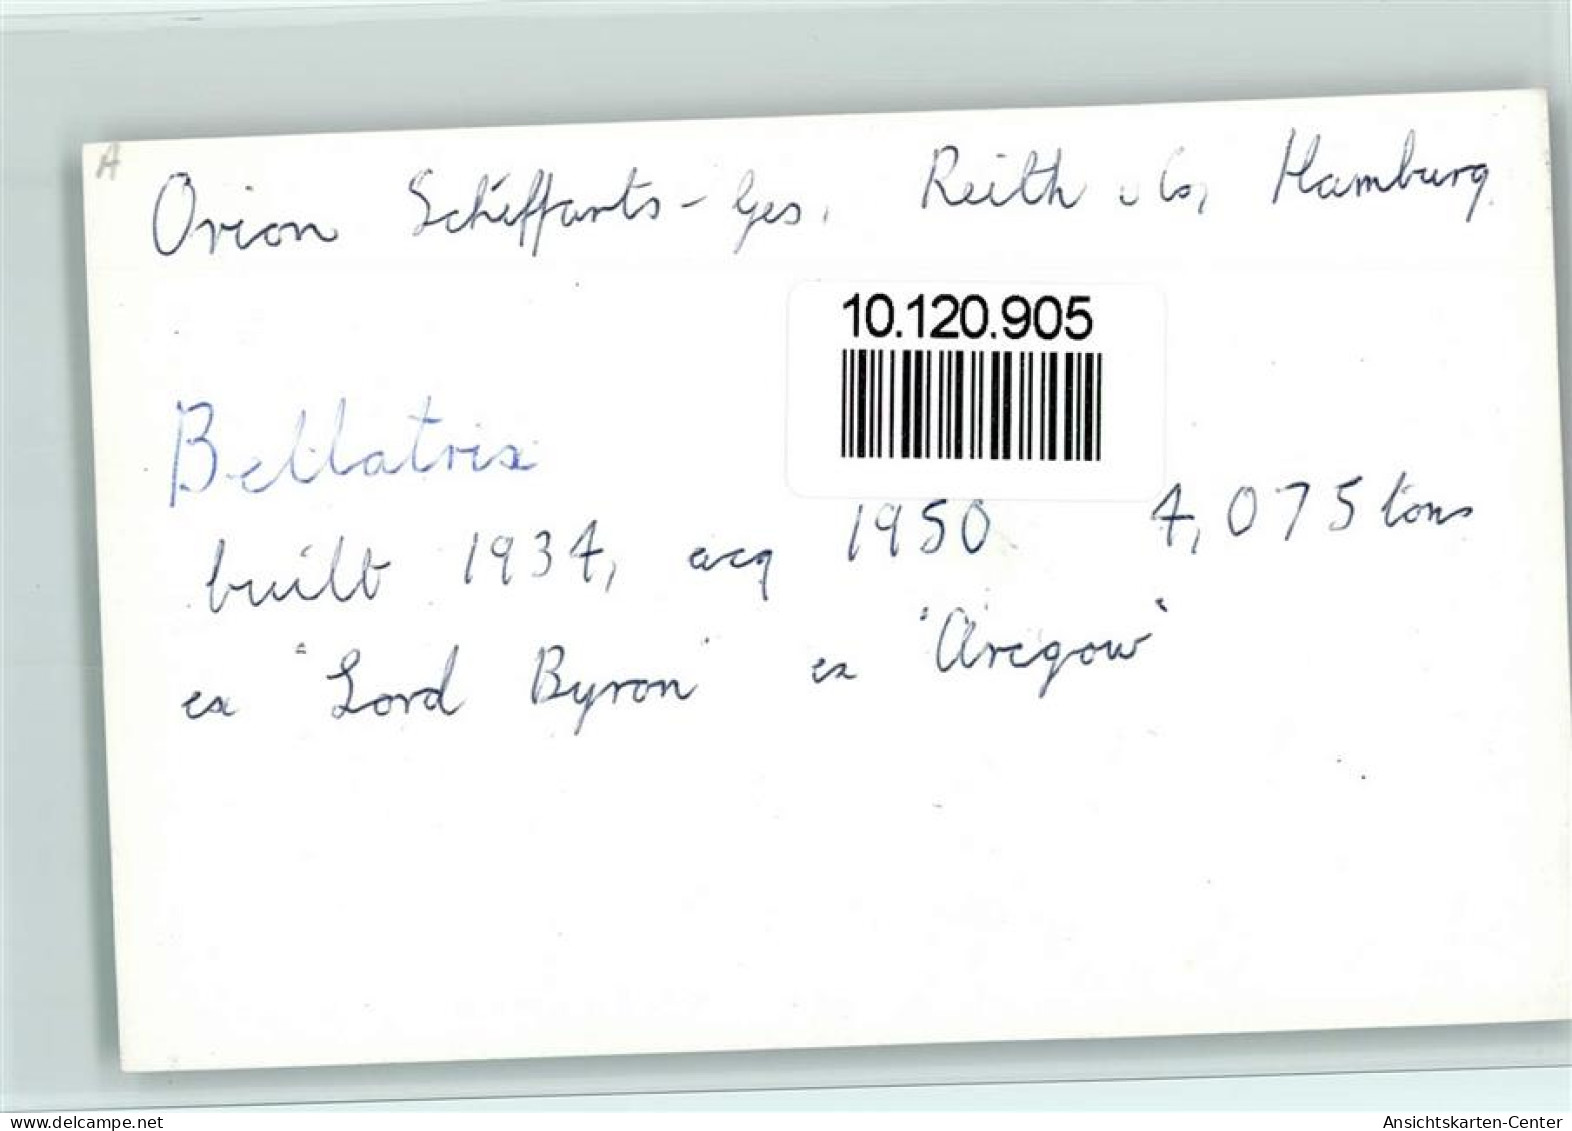 A
Orion Schiffarts-Ges. Reith u Co, Hamburg.
10.120.905
Bellatrix
built 1934, acq 1950 4,075 tons
ex "Lord Byron" ex "Aregow"
www.delcampe.net
Ansichtskarten-Center